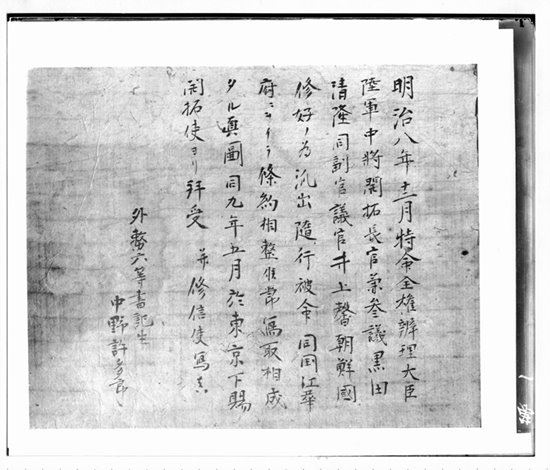 明治八年十二月特命全権辨理大臣
陸軍中將開拓長官兼参議黒田
清隆同副官議官井上馨朝鮮國
修好ノ為派出隨行被命同国江華
府ニ条約相整候節寫取相成
タル真圖同九年五月於東京下賜
開拓使ヨリ拜受并修信使寫真
外務六等書記生
中野許多郎